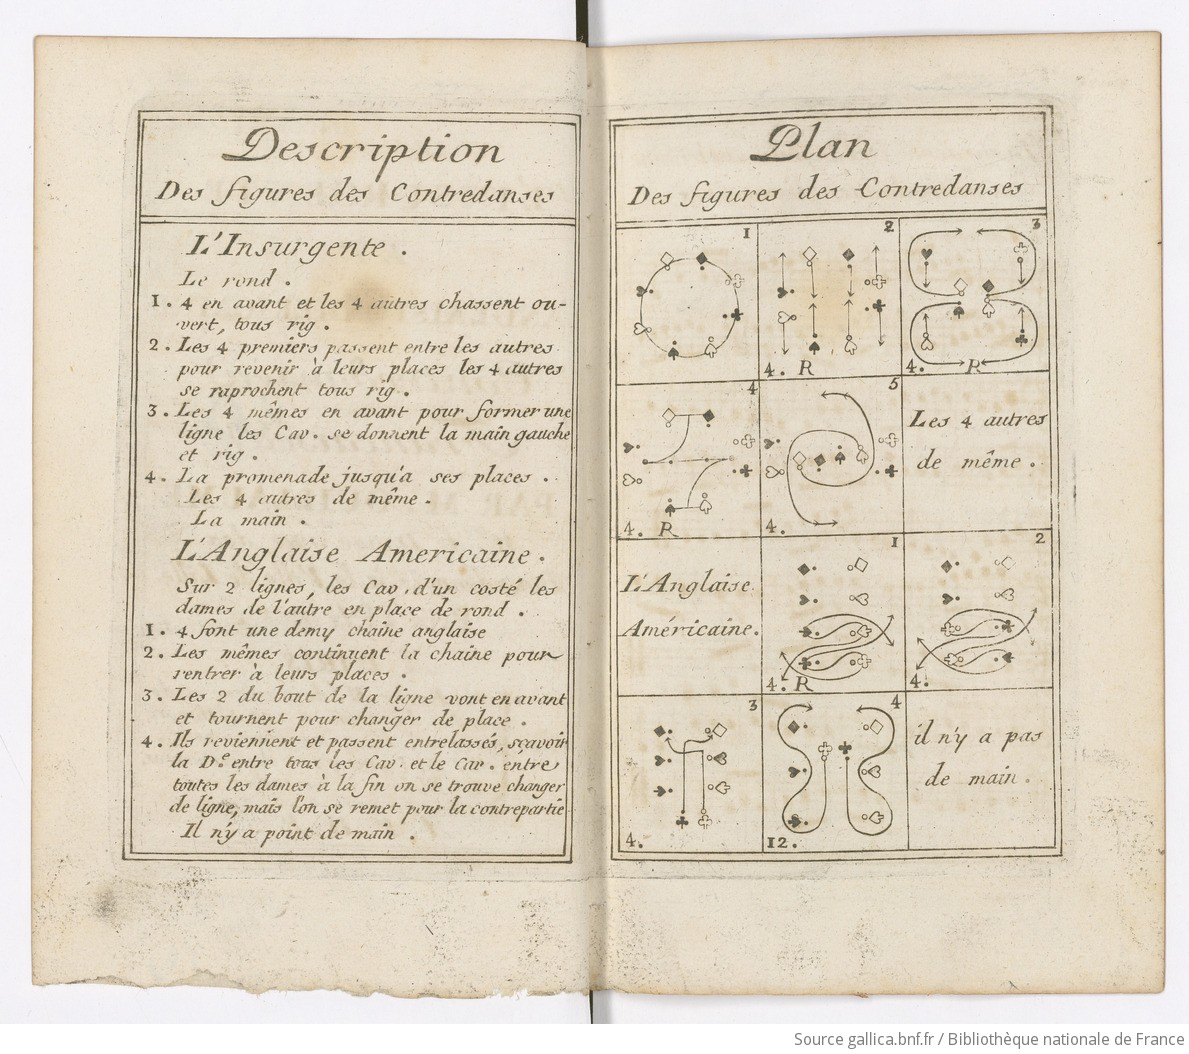 Description
Des figures des Contredanses
L'Insurgente.
Le rond.
1. 4 en avant et les 4 autres chassent ou-
vert, tous rig.
2. Les 4 premiers passent entre les autres
pour revenir à leurs places les 4 autres
se raprochent tous rig.
3. Les 4 mêmes en avant pour former une
ligne les Cav. se donnent la main gauche
et rig.
4. La promenade jusqu'a ses places.
Les 4 autres de même.
La main.
L'Anglaise Americaine.
Sur 2 lignes, les Cav. d'un costé les
dames de l'autre en place de rond.
1. 4 font une demy chaine anglaise
2. Les mêmes continuent la chaine pour
rentrer à leurs places.
3. Les 2 du bout de la ligne vont en avant
et tournent pour changer de place.
4. Ils reviennent et passent entrelassés, sçavoir
la De entre tous les Cav. et le Cav. entre
toutes les dames à la fin on se trouve changer
de ligne, mais l'on se remet pour la contrepartie
Il n'y a point de main.
Plan
Des figures des Contredanses
1
2
4. R
3
4. R
4
4. R
5
4.
Les 4 autres
de même.
L'Anglaise
Américaine.
1
4. R
2
4.
3
4.
4
12.
il n'y a pas
de main.
Source gallica.bnf.fr / Bibliothèque nationale de France